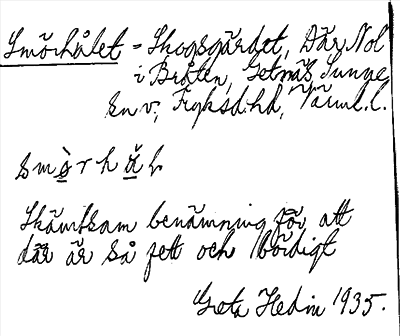 Smörhålet = Skogsgärdet, Där Nol
i Bråten, Getnäs, Sunne
sn v., Fryksd. hd, Värml. l.
smo̱̊rhå̱l
Skämtsam benämning för att
där är så fett och bördigt
Greta Hedin 1935.